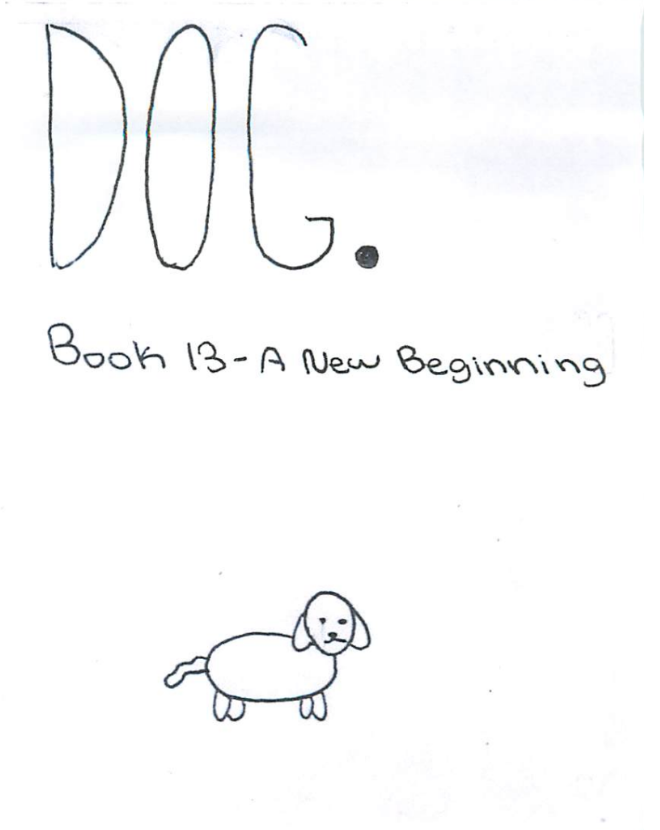 DOG.
Book 13-A New Beginning